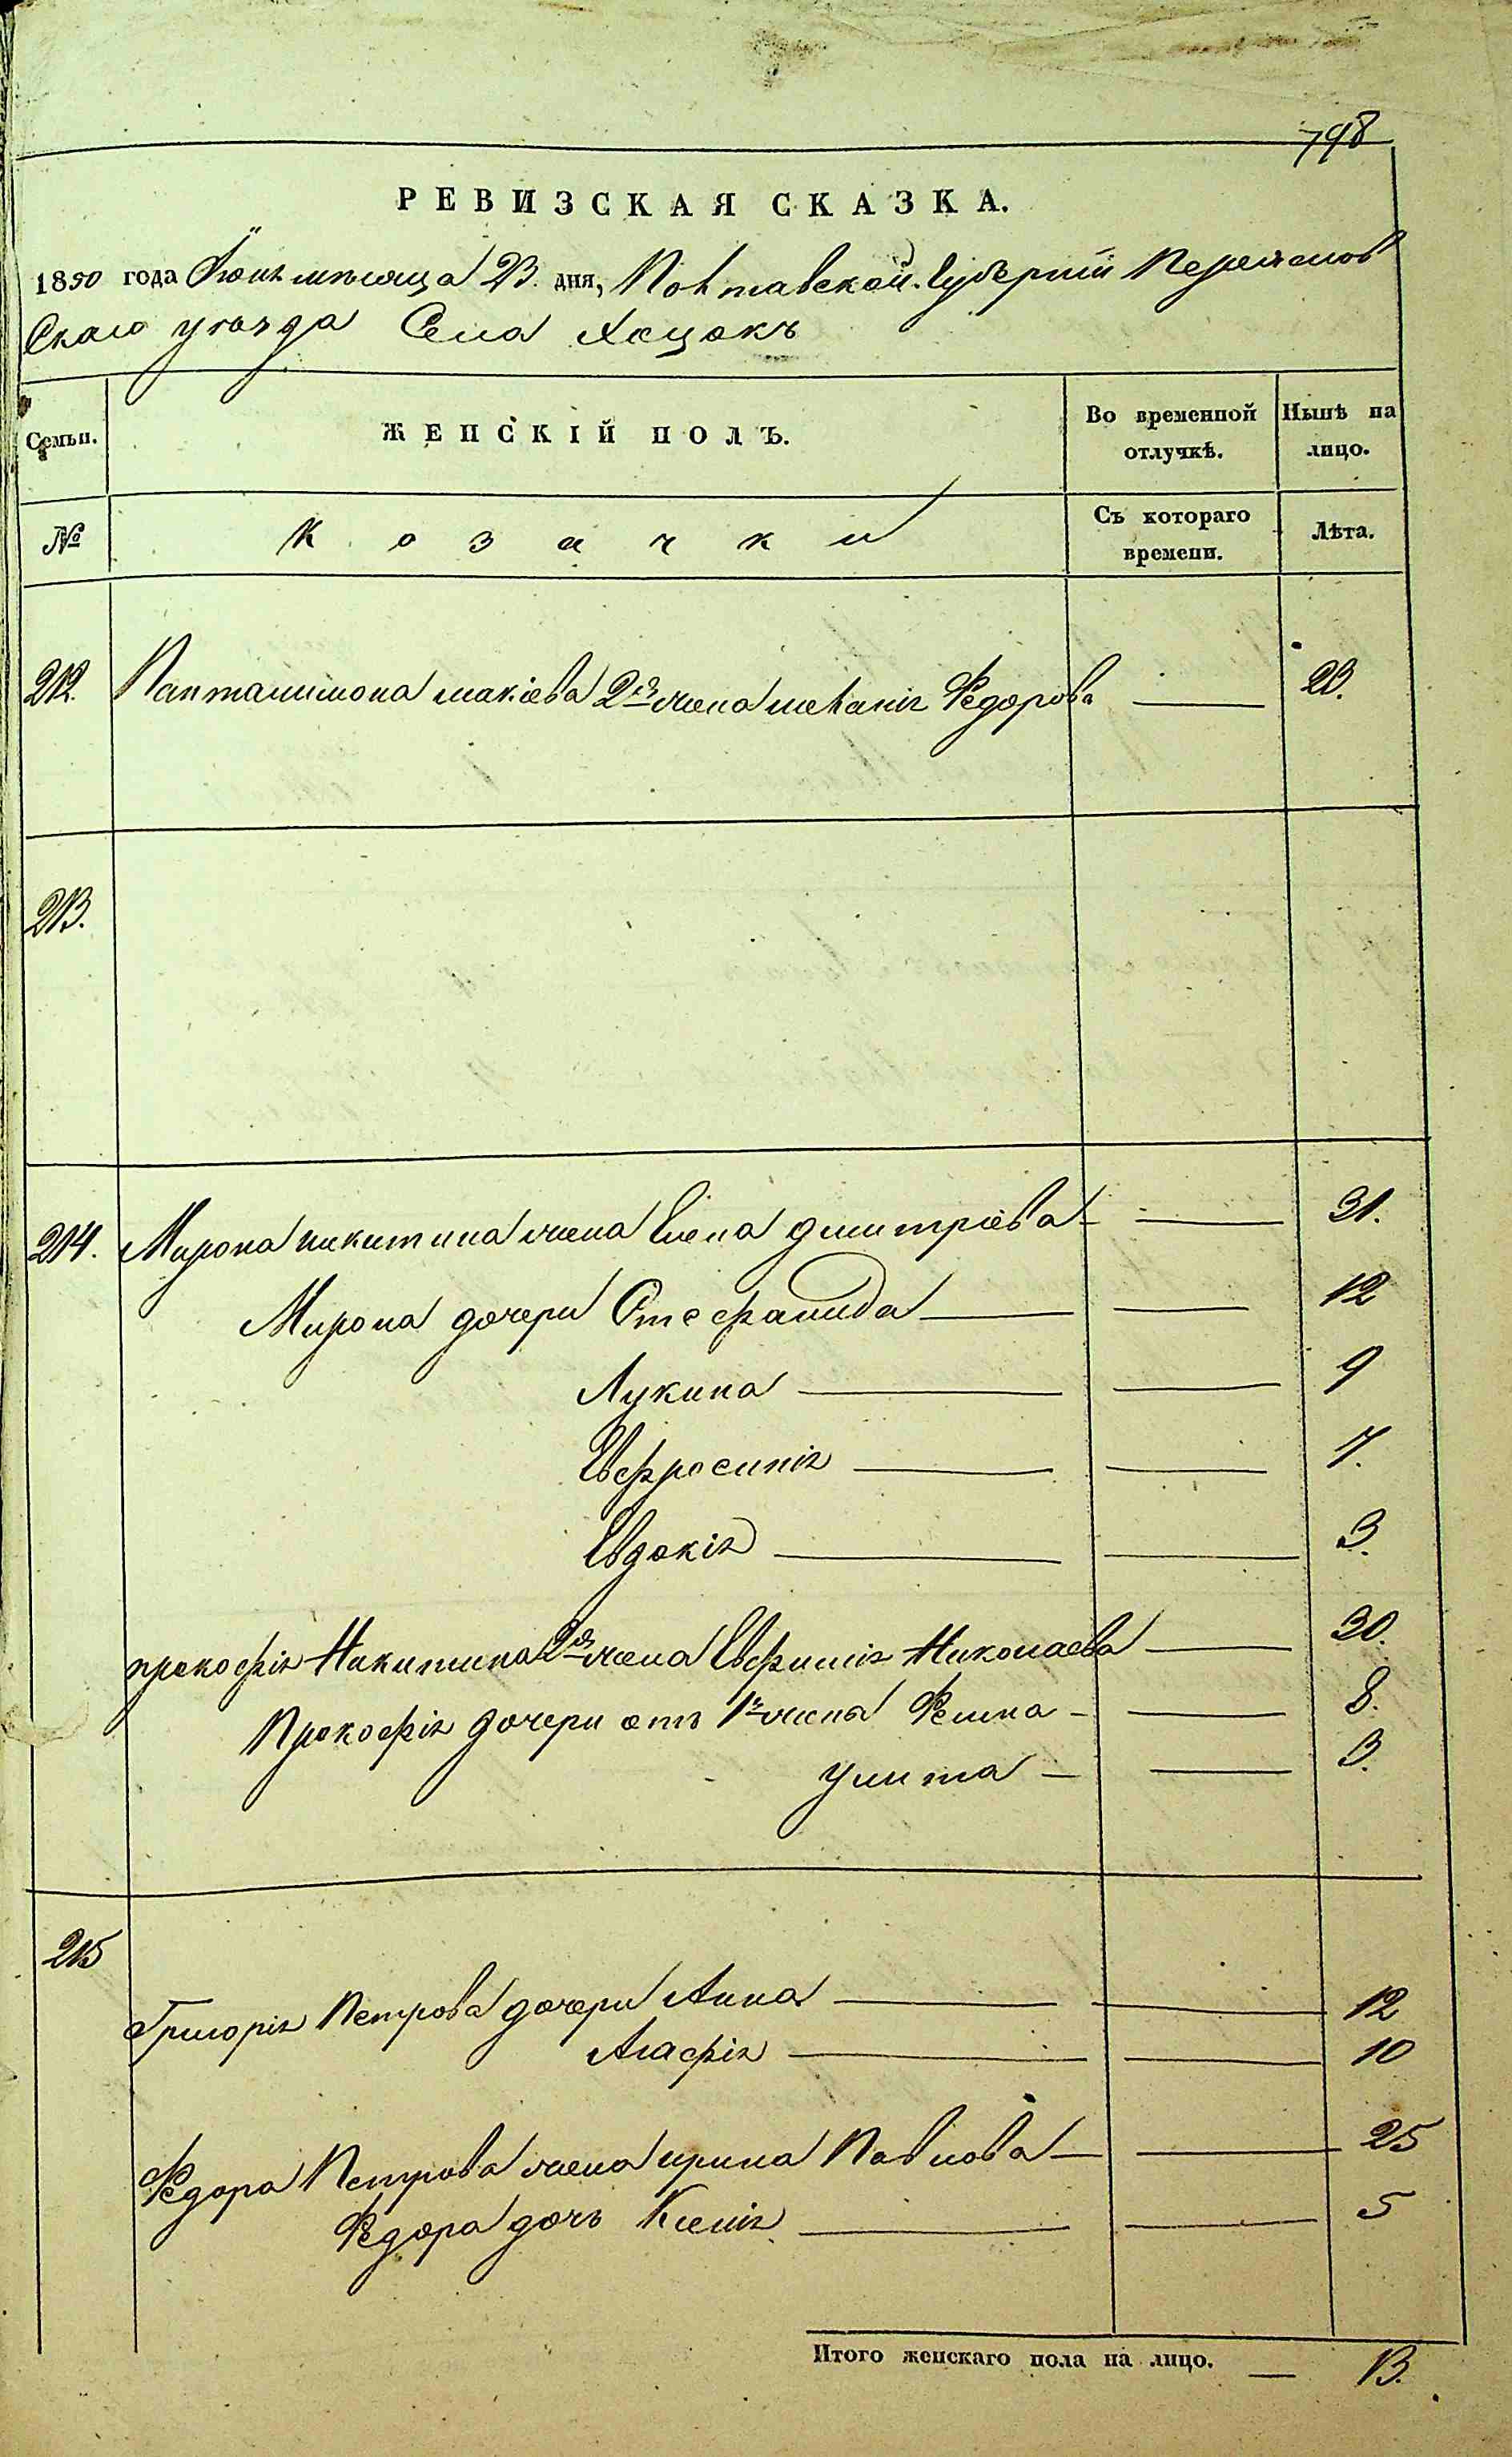 798
РЕВИЗСКАЯ СКАЗКА.
1850 года Іюнь мѣсяца 23. дня, Полтавской Губерніи Переяслов
Скаго уѣзда Села Хоцокъ
Семьи. ЖЕНСКІЙ ПОЛЪ. Во временной отлучкѣ. Нынѣ на лицо.
№ Козачки Съ котораго времени. Лѣта.
212. Панталимона макіева 2я жена меланія Федорова 20.
213.
214. Мирона никитина жена Елена дмитріева 31.
Мирона дочери Стефанида 12
Лукина 9
Евфросинія 7.
Евдокія 3.
прокофія Никитина 2я жена Евфимія Николаева 30.
Прокофія дочери отъ 1й жены Фекла 8.
улита 3.
215
Григорія Петрова дочери Анна 12
Агафія 10
Федора Петрова жена ирина Павлова 25
Федора дочь Ксенія 5
Итого женскаго пола на лицо. — 13.